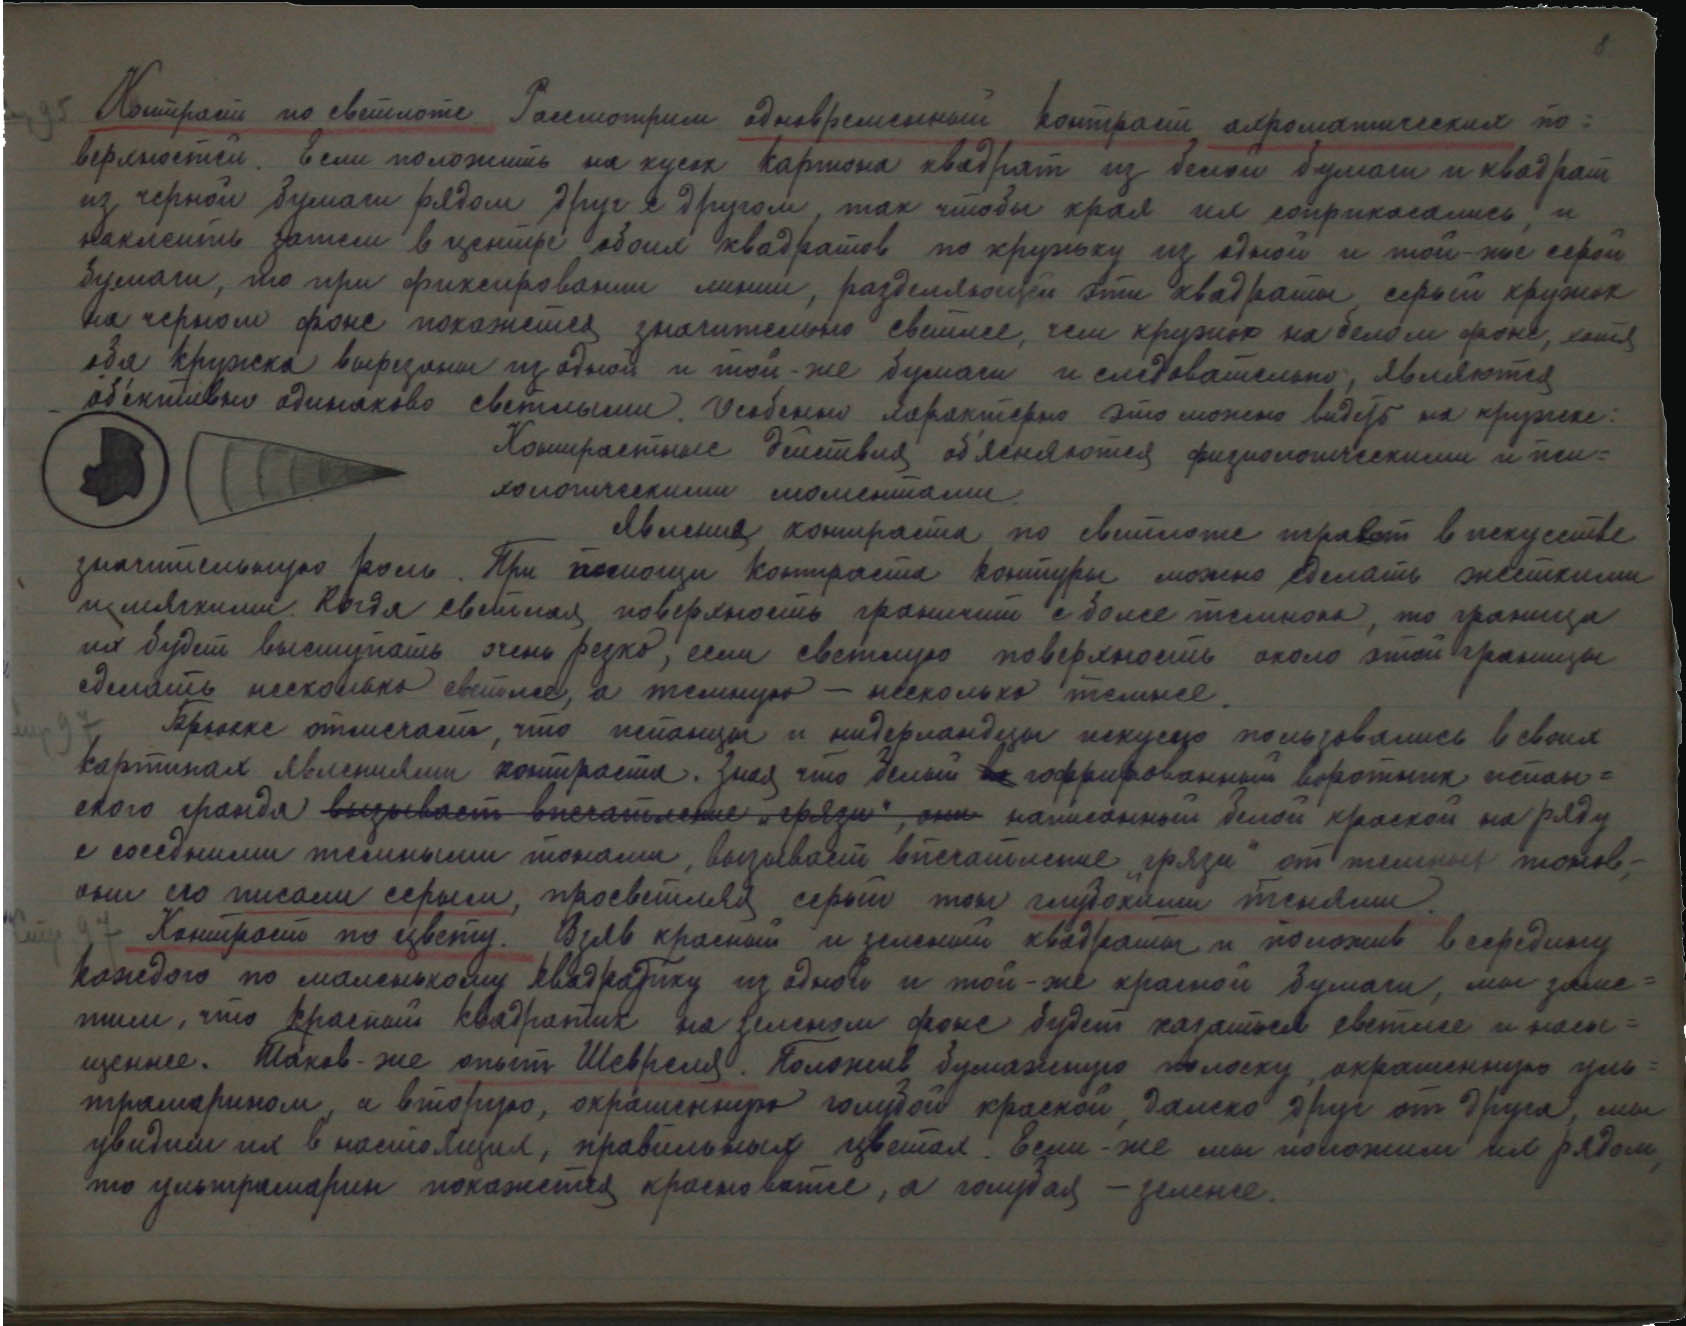 8
Контраст по светлоте. Рассмотрим одновременный контраст ахроматических по=
верхностей. Если положить на кусок картона квадрат из белой бумаги и квадрат
из черной бумаги рядом друг с другом, так чтобы края их соприкасались, и
наклеить затем в центре обоих квадратов по кружку из одной и той-же серой
бумаги, то при фиксировании линии, разделяющей эти квадраты, серый кружок
на черном фоне покажется значительно светлее, чем кружок на белом фоне, хотя
оба кружка вырезаны из одной и той-же бумаги и следовательно, являются
об'ективно одинаково светлыми. Особенно характерно это можно видеть на кружке:
Контрастные действия об'ясняются физиологическими и пси=
хологическими моментами.
Явления контраста по светлоте играют в искусстве
значительную роль. При помощи контраста контуры можно сделать жесткими
и мягкими. Когда светлая поверхность граничит с более темною, то граница
их будет выступать очень резко, если светлую поверхность около этой границы
сделать несколько светлее, а темную — несколько темнее.
стр 97
Брюкке отмечает, что испанцы и нидерландцы искусно пользовались в своих
картинах явлениями контраста. Зная что белый гофрированный воротник испан=
ского гранда вызывает впечатление „грязи", они написанный белой краской на ряду
с соседними темными тонами, вызывает впечатление „грязи" от темных тонов,—
они его писали серым, просветляя серый тон глубокими тенями.
стр 97
Контраст по цвету. Взяв красный и зеленый квадраты и положив в середину
каждого по маленькому квадратику из одной и той-же красной бумаги, мы заме=
тим, что красный квадратик на зеленом фоне будет казаться светлее и насы=
щеннее. Таков-же опыт Шевреля. Положив бумажную полоску, окрашенную уль=
трамарином, и вторую, окрашенную голубой краской, далеко друг от друга, мы
увидим их в настоящих, правильных цветах. Если-же мы положим их рядом,
то ультрамарин покажется красноватее, а голубая — зеленее.